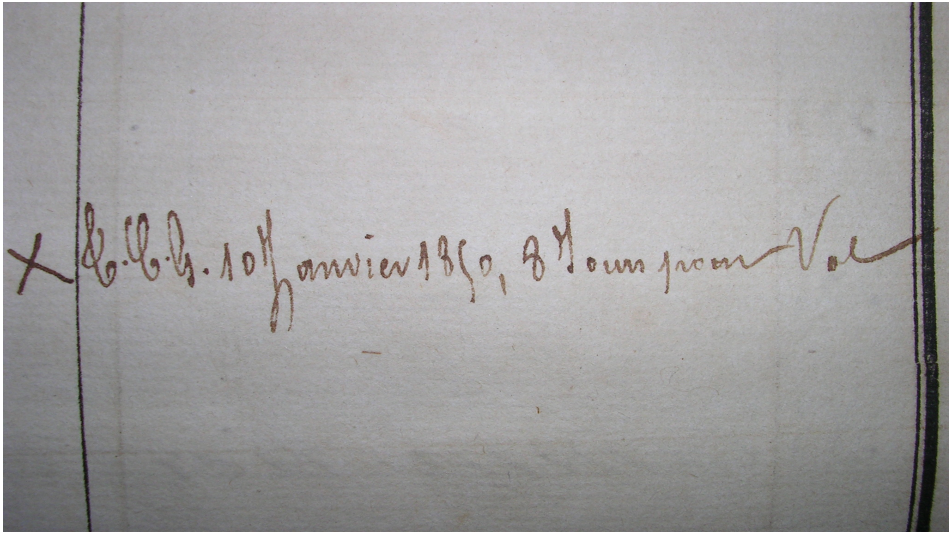 X T.C.G. 10 Janvier 1850, 8 Jours pour Vol